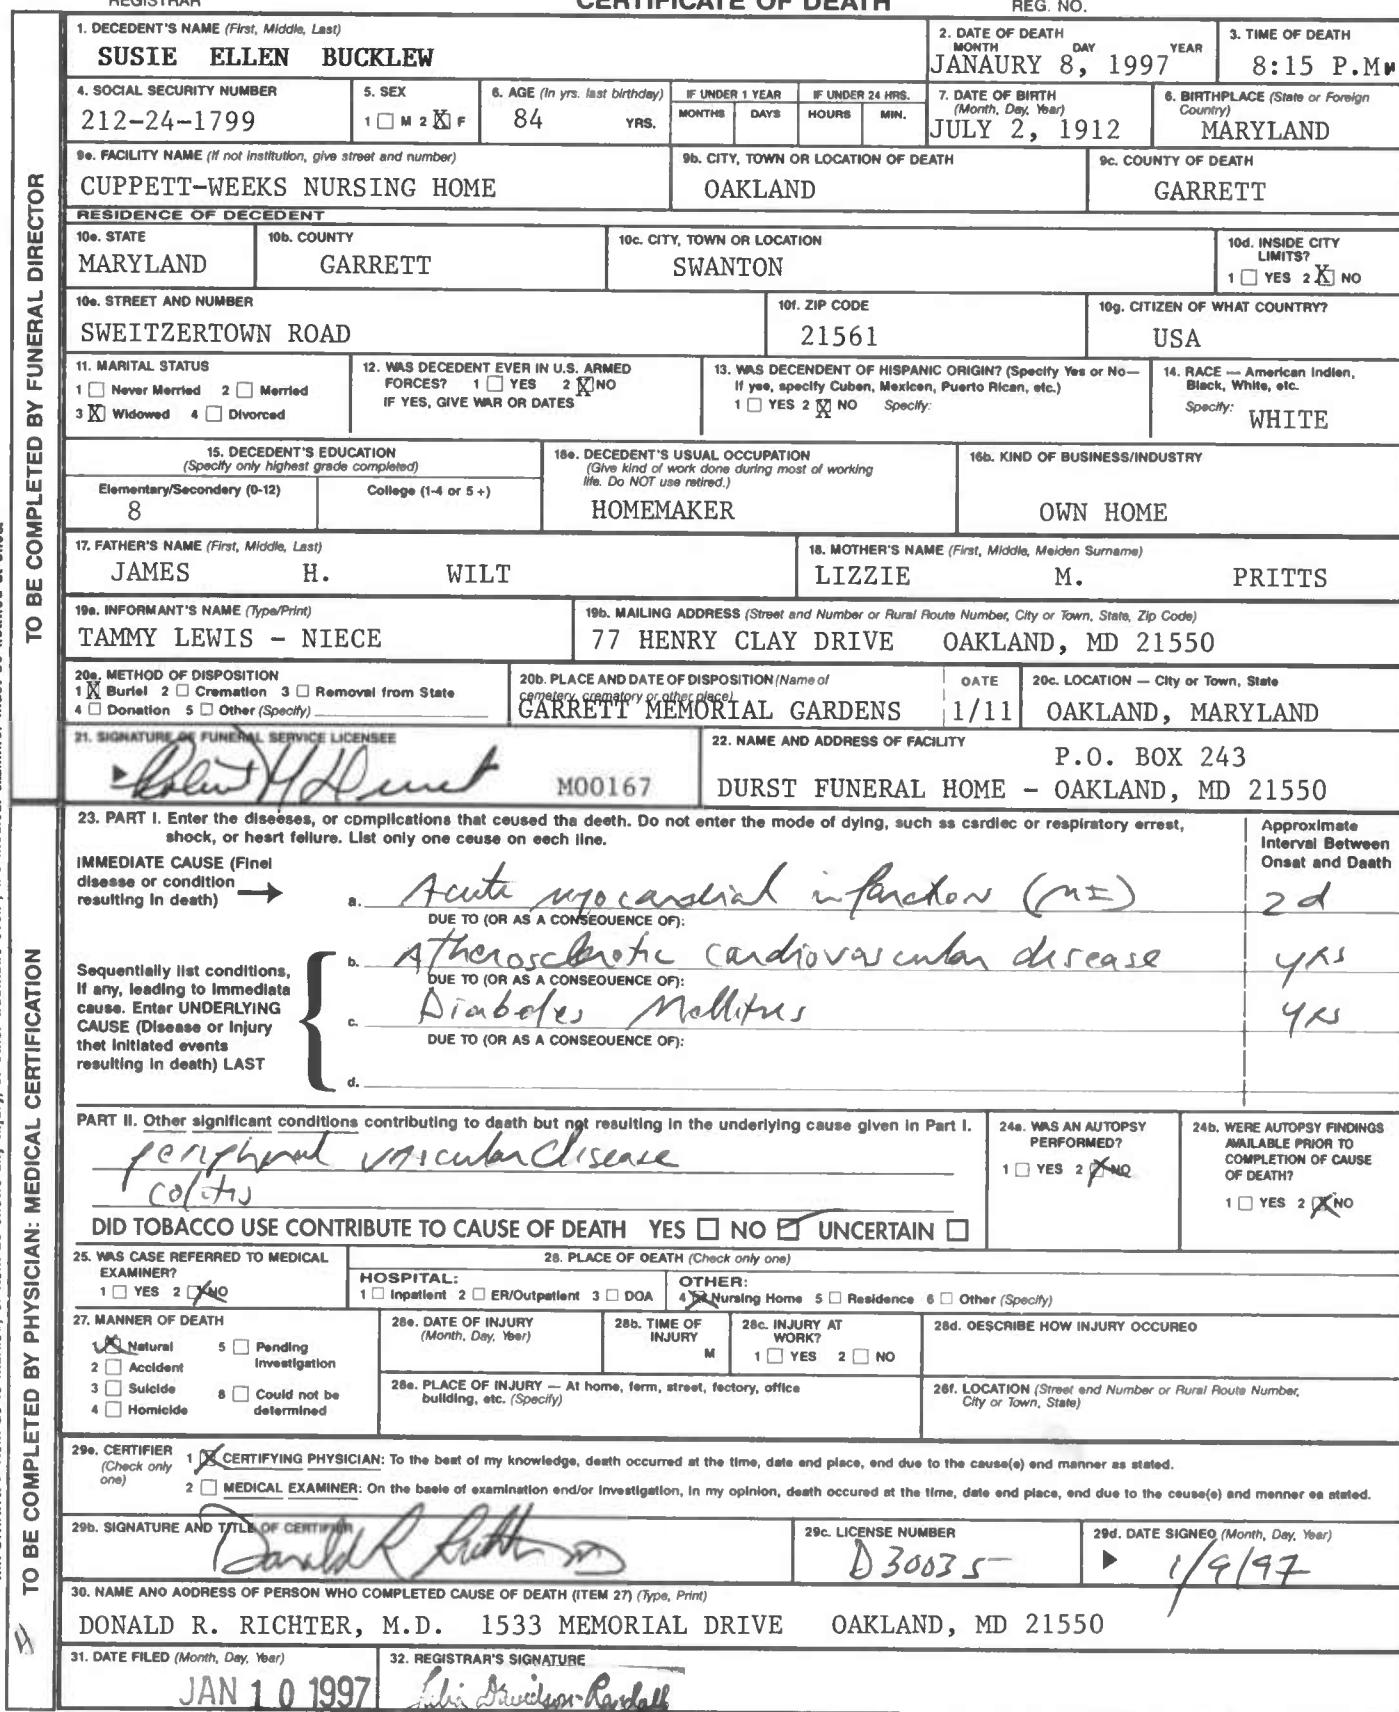 REGISTRAR CERTIFICATE OF DEATH REG. NO.
1. DECEDENT'S NAME (First, Middle, Last)
SUSIE ELLEN BUCKLEW
2. DATE OF DEATH
MONTH DAY YEAR
JANAURY 8, 1997
3. TIME OF DEATH
8:15 P.M
4. SOCIAL SECURITY NUMBER
212-24-1799
5. SEX
1 ☐ M 2 ☒ F
6. AGE (In yrs. last birthday)
84 YRS.
IF UNDER 1 YEAR
MONTHS DAYS
IF UNDER 24 HRS.
HOURS MIN.
7. DATE OF BIRTH
(Month, Day, Year)
JULY 2, 1912
6. BIRTHPLACE (State or Foreign
Country)
MARYLAND
9e. FACILITY NAME (If not institution, give street and number)
CUPPETT-WEEKS NURSING HOME
9b. CITY, TOWN OR LOCATION OF DEATH
OAKLAND
9c. COUNTY OF DEATH
GARRETT
RESIDENCE OF DECEDENT
10e. STATE
MARYLAND
10b. COUNTY
GARRETT
10c. CITY, TOWN OR LOCATION
SWANTON
10d. INSIDE CITY
LIMITS?
1 ☐ YES 2 ☒ NO
10e. STREET AND NUMBER
SWEITZERTOWN ROAD
10f. ZIP CODE
21561
10g. CITIZEN OF WHAT COUNTRY?
USA
11. MARITAL STATUS
1 ☐ Never Merried 2 ☐ Merried
3 ☒ Widowed 4 ☐ Divorced
12. WAS DECEDENT EVER IN U.S. ARMED
FORCES? 1 ☐ YES 2 ☒ NO
IF YES, GIVE WAR OR DATES
13. WAS DECENDENT OF HISPANIC ORIGIN? (Specify Yes or No—
If yee, specify Cuben, Mexicen, Puerto Rican, etc.)
1 ☐ YES 2 ☒ NO Specify:
14. RACE — Americen Indien,
Bleck, White, etc.
Specify: WHITE
15. DECEDENT'S EDUCATION
(Specify only highest grade completed)
Elementary/Secondery (0-12) College (1-4 or 5 +)
8
18e. DECEDENT'S USUAL OCCUPATION
(Give kind of work done during most of working
life. Do NOT use retired.)
HOMEMAKER
16b. KIND OF BUSINESS/INDUSTRY
OWN HOME
17. FATHER'S NAME (First, Middle, Last)
JAMES H. WILT
18. MOTHER'S NAME (First, Middle, Meiden Surname)
LIZZIE M. PRITTS
19e. INFORMANT'S NAME (Type/Print)
TAMMY LEWIS - NIECE
19b. MAILING ADDRESS (Street and Number or Rural Route Number, City or Town, State, Zip Code)
77 HENRY CLAY DRIVE OAKLAND, MD 21550
20e. METHOD OF DISPOSITION
1 ☒ Buriel 2 ☐ Cremation 3 ☐ Removal from State
4 ☐ Donation 5 ☐ Other (Specify)
20b. PLACE AND DATE OF DISPOSITION (Name of
cemetery, crematory or other place)
GARRETT MEMORIAL GARDENS
DATE
1/11
20c. LOCATION — City or Town, State
OAKLAND, MARYLAND
21. SIGNATURE OF FUNERAL SERVICE LICENSEE
Robert H Durst M00167
22. NAME AND ADDRESS OF FACILITY
P.O. BOX 243
DURST FUNERAL HOME - OAKLAND, MD 21550
TO BE COMPLETED BY FUNERAL DIRECTOR
23. PART I. Enter the diseeses, or complications that ceused tha deeth. Do not enter the mode of dying, such ss csrdiec or respiratory errest,
shock, or heart feilure. List only one ceuse on eech line.
Approximate
Interval Between
Onsat and Daath
IMMEDIATE CAUSE (Finel
disease or condition
resulting In death)
a. Acute myocardial infarction (MI) 2d
DUE TO (OR AS A CONSEQUENCE OF):
b. Atherosclerotic cardiovascular disease yrs
DUE TO (OR AS A CONSEOUENCE OF):
c. Diabetes Mellitus yrs
DUE TO (OR AS A CONSEOUENCE OF):
d.
Sequentially list conditions,
If any, leading to Immediata
cause. Enter UNDERLYING
CAUSE (Disease or Injury
thet Initiated events
resulting in death) LAST
PART II. Other significant conditions contributing to daath but not resulting in the underlying cause given in Part I.
peripheral vascular disease
colitis
DID TOBACCO USE CONTRIBUTE TO CAUSE OF DEATH YES ☐ NO ☑ UNCERTAIN ☐
24e. WAS AN AUTOPSY
PERFORMED?
1 ☐ YES 2 ☒ NO
24b. WERE AUTOPSY FINDINGS
AVAILABLE PRIOR TO
COMPLETION OF CAUSE
OF DEATH?
1 ☐ YES 2 ☒ NO
25. WAS CASE REFERRED TO MEDICAL
EXAMINER?
1 ☐ YES 2 ☒ NO
28. PLACE OF OEATH (Check only one)
HOSPITAL:
1 ☐ Inpatlent 2 ☐ ER/Outpatlent 3 ☐ DOA
OTHER:
4 ☒ Nursing Home 5 ☐ Residence 6 ☐ Other (Specify)
27. MANNER OF DEATH
1 ☒ Natural 5 ☐ Pending
Investigation
2 ☐ Accident
3 ☐ Suicide 8 ☐ Could not be
determined
4 ☐ Homicide
28e. DATE OF INJURY
(Month, Day, Year)
28b. TIME OF
INJURY
M
28c. INJURY AT
WORK?
1 ☐ YES 2 ☐ NO
28d. OESCRIBE HOW INJURY OCCUREO
28e. PLACE OF INJURY — At home, ferm, street, fectory, office
building, etc. (Specify)
26f. LOCATION (Street end Number or Rural Route Number,
City or Town, State)
29e. CERTIFIER
(Check only
one)
1 ☒ CERTIFYING PHYSICIAN: To the beat of my knowledge, deeth occurred at the time, date end plece, end due to the cause(e) end manner as stated.
2 ☐ MEDICAL EXAMINER: On the baele of examination end/or Investlgation, In my oplnlon, death occured at the time, date end place, end due to the ceuse(e) and menner ee atated.
29b. SIGNATURE AND TITLE OF CERTIFIER
29c. LICENSE NUMBER
D30035
29d. DATE SIGNEO (Month, Day, Year)
1/9/97
30. NAME ANO AODRESS OF PERSON WHO COMPLETED CAUSE OF DEATH (ITEM 27) (Type, Print)
DONALD R. RICHTER, M.D. 1533 MEMORIAL DRIVE OAKLAND, MD 21550
31. DATE FILED (Month, Day, Year)
JAN 10 1997
32. REGISTRAR'S SIGNATURE
TO BE COMPLETED BY PHYSICIAN: MEDICAL CERTIFICATION